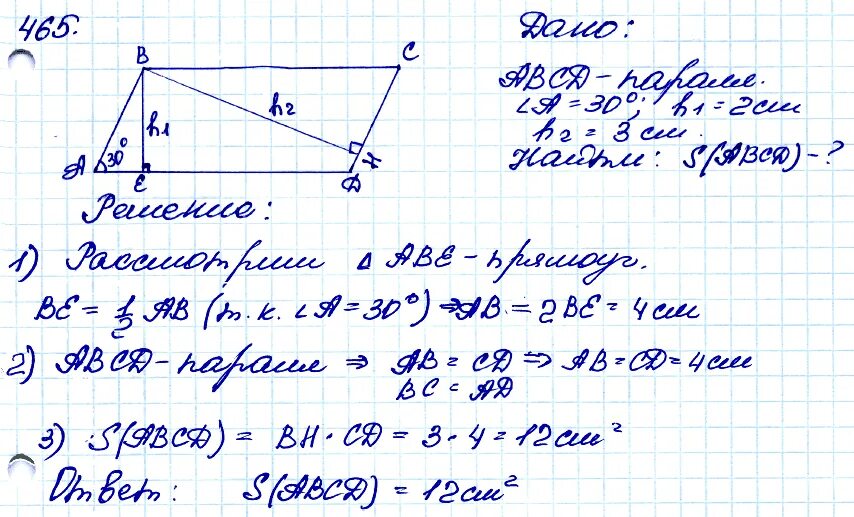 465.
Дано:
ABCD – паралл.
∠A = 30°; h1 = 2 см
h2 = 3 см.
Найти: S(ABCD) – ?
B
C
h2
h1
30°
A
E
D
H
Решение:
1) Рассмотрим △ ABE – прямоуг.
BE = 1/2 AB (т. к. ∠A = 30°) ⇒ AB = 2BE = 4 см
2) ABCD – паралл ⇒ AB = CD ⇒ AB = CD = 4 см
BC = AD
3) S(ABCD) = BH · CD = 3 · 4 = 12 см²
Ответ: S(ABCD) = 12 см²